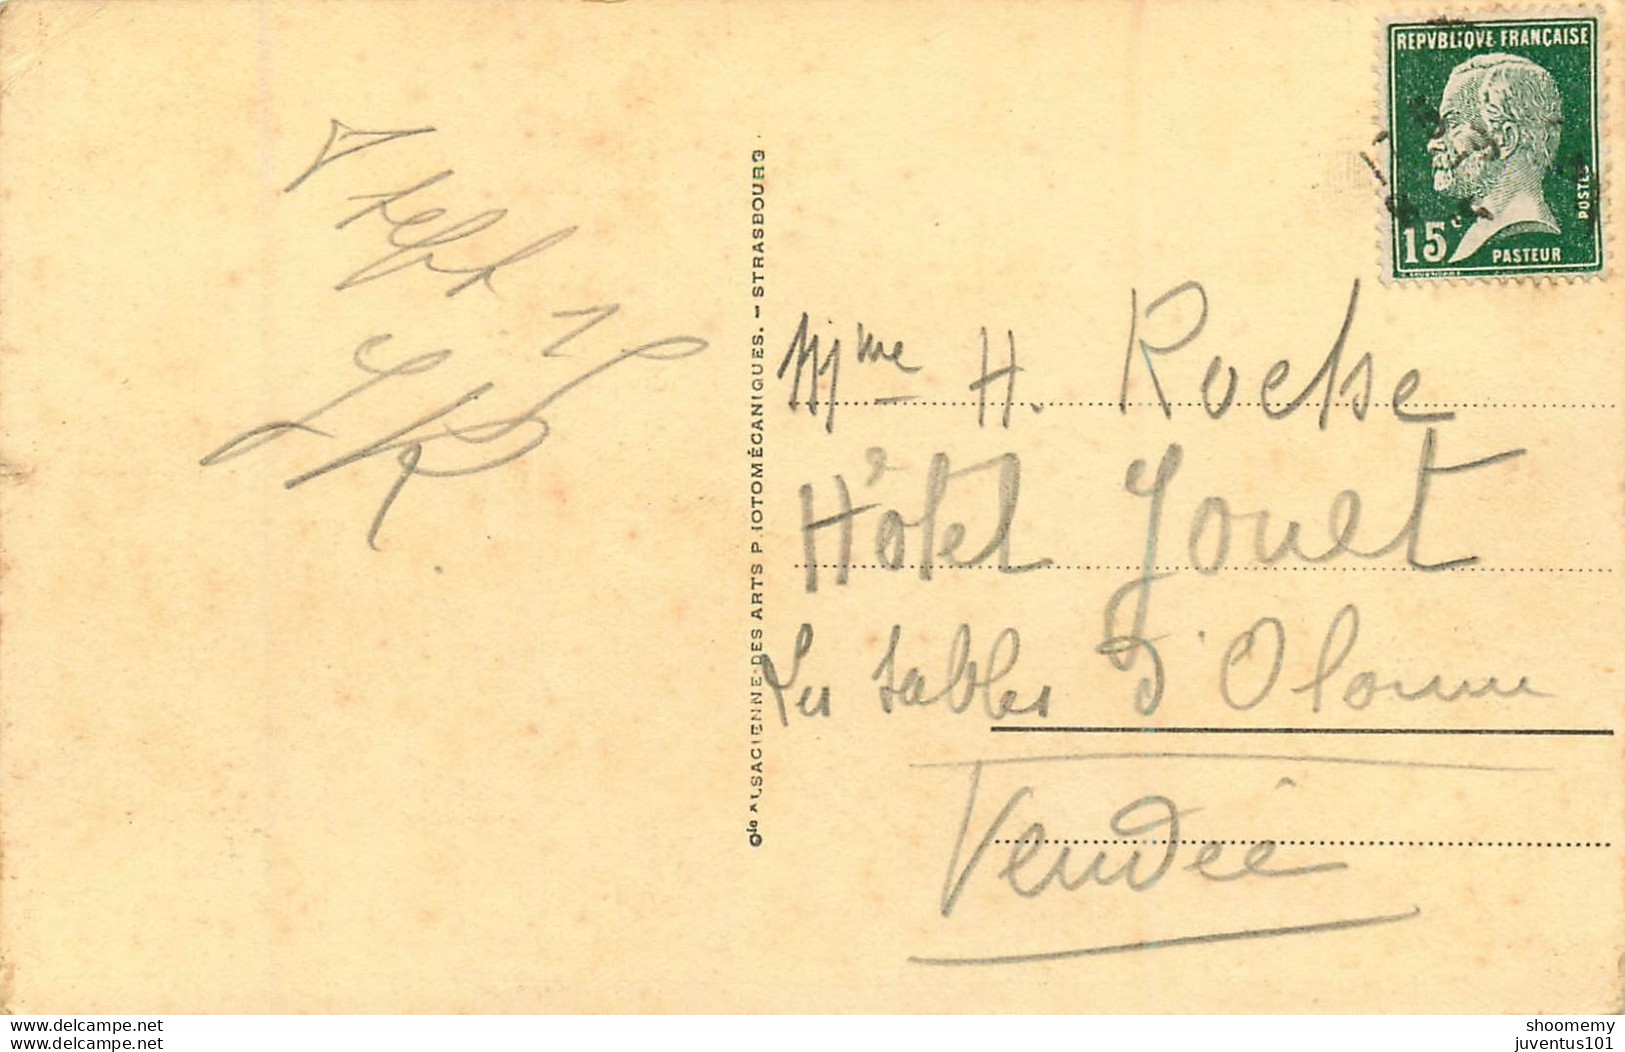 REPVBLIQVE FRANÇAISE
15c
POSTES
PASTEUR
Cie ALSACIENNE DES ARTS PHOTOMÉCANIQUES. — STRASBOURG
7 sept
Mme H. Roche
Hôtel Jouet
Les Sables d'Olonne
Vendée
www.delcampe.net
www.delcampe.net
shoomemy
juventus101